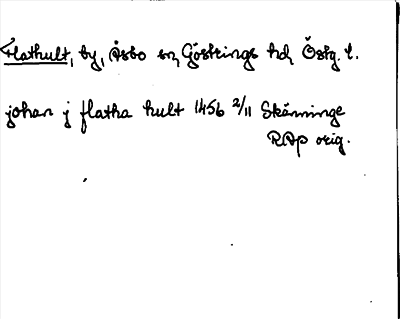 Flathult, by, Åsbo sn, Göstrings hd, Östg. l.
johan j flatha hult 1456 2/11 Skänninge
RAp orig.